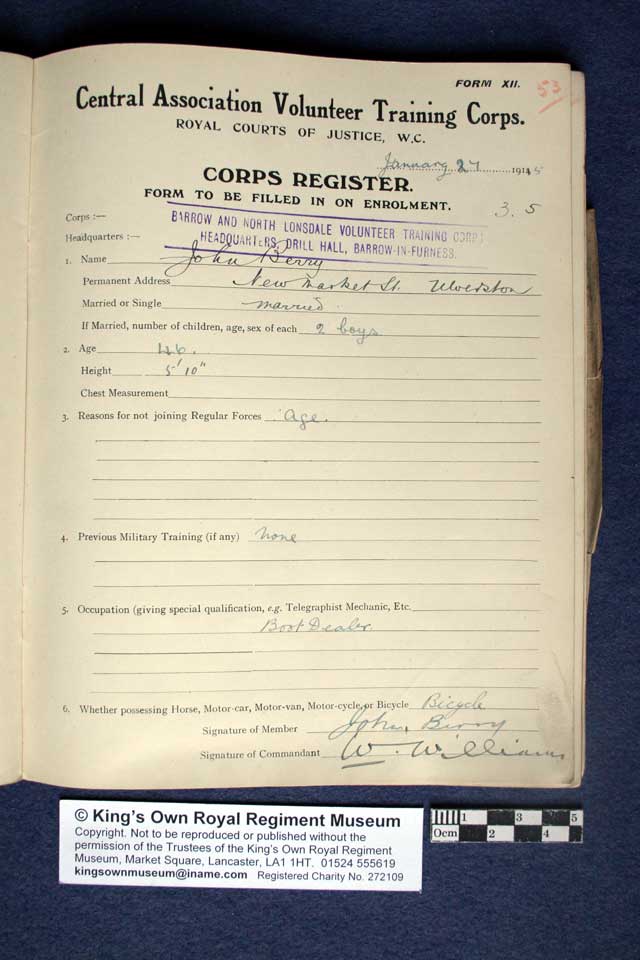 FORM XII.
53
Central Association Volunteer Training Corps.
ROYAL COURTS OF JUSTICE, W.C.
January 27 1915
CORPS REGISTER.
FORM TO BE FILLED IN ON ENROLMENT.
3. 5
Corps :—
BARROW AND NORTH LONSDALE VOLUNTEER TRAINING CORPS
Headquarters :—
HEADQUARTERS, DRILL HALL, BARROW-IN-FURNESS.
1. Name John Berry
Permanent Address New Market St. Ulverston
Married or Single married.
If Married, number of children, age, sex of each 2 boys
2. Age 46.
Height 5' 10"
Chest Measurement
3. Reasons for not joining Regular Forces Age.
4. Previous Military Training (if any) None
5. Occupation (giving special qualification, e.g. Telegraphist Mechanic, Etc.
Boot Dealer
6. Whether possessing Horse, Motor-car, Motor-van, Motor-cycle, or Bicycle Bicycle
Signature of Member John Berry
Signature of Commandant W. Williams
© King's Own Royal Regiment Museum
Copyright. Not to be reproduced or published without the
permission of the Trustees of the King's Own Royal Regiment
Museum, Market Square, Lancaster, LA1 1HT. 01524 555619
kingsownmuseum@iname.com Registered Charity No. 272109
1 3 5
0cm 2 4